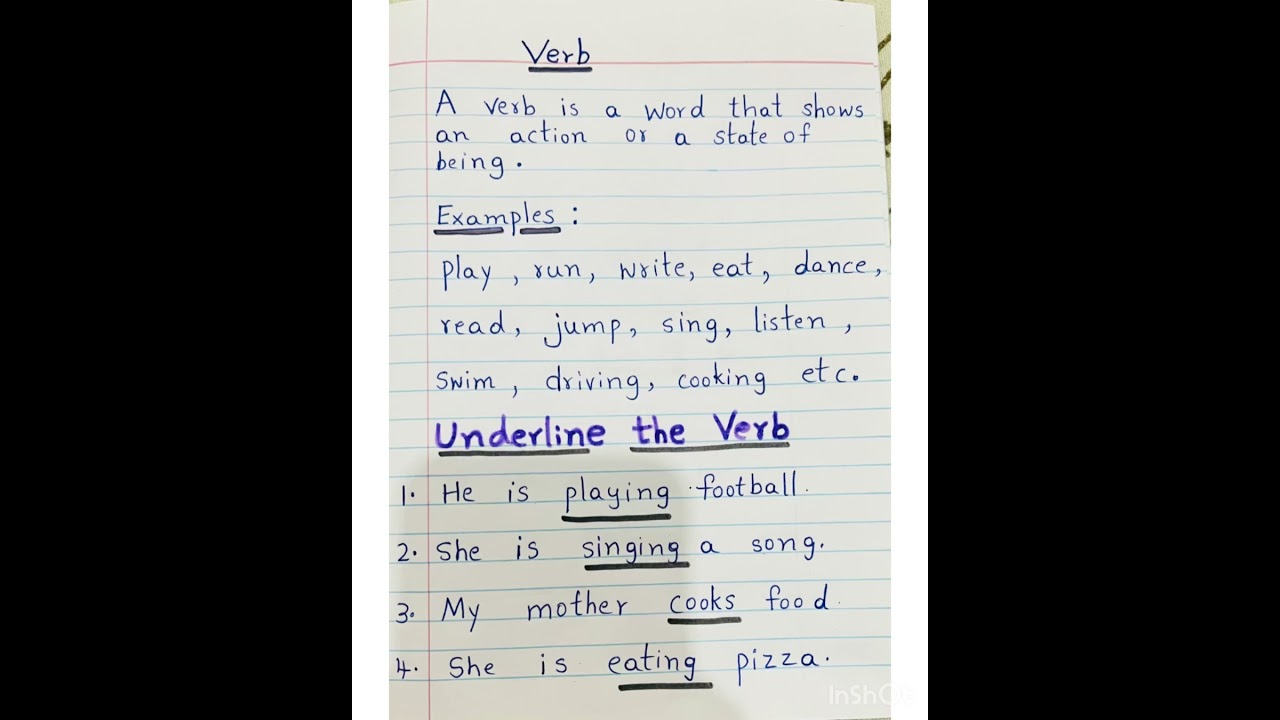 Verb
A verb is a word that shows
an action or a state of
being.
Examples :
play, run, write, eat, dance,
read, jump, sing, listen,
swim, driving, cooking etc.
Underline the Verb
1. He is playing football.
2. She is singing a song.
3. My mother cooks food.
4. She is eating pizza.
InShOt